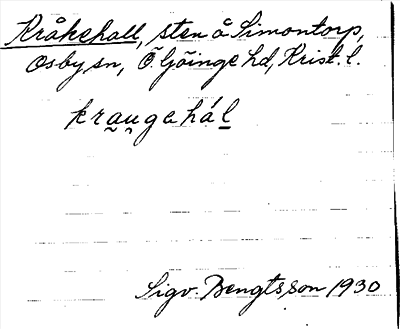 Kråkehall, sten å Simontorp,
Osby sn, Ö. Göinge hd, Krist. l.
kra̰ṵgahál
Sigv. Bengtsson 1930